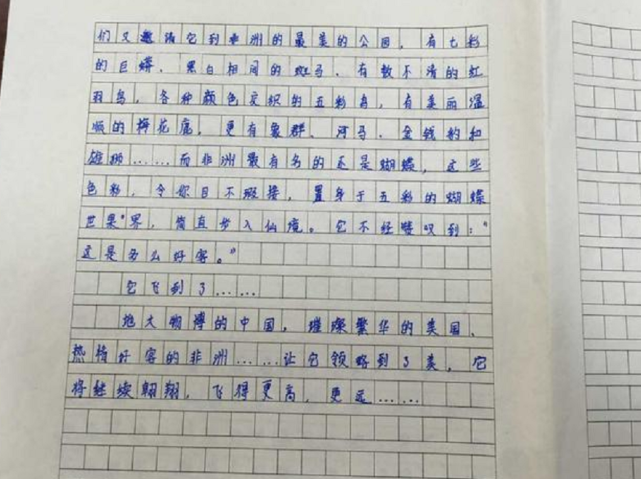 们又邀请它到非洲的最美的公园,有七彩
的巨蟒、黑白相间的斑马、有数不清的红
羽鸟,各种颜色交织的五彩鸟,有美丽温
顺的梅花鹿,更有象群、河马、金钱豹和
雄狮……而非洲最有名的还是蝴蝶,这些
色彩,令你目不暇接,置身于五彩的蝴蝶
世界,简直步入仙境。它不经赞叹到:"
这是多么好客。"
它飞到了……
地大物博的中国,璀璨繁华的美国、
热情好客的非洲……让它领略到了美,它
将继续翱翔,飞得更高,更远……